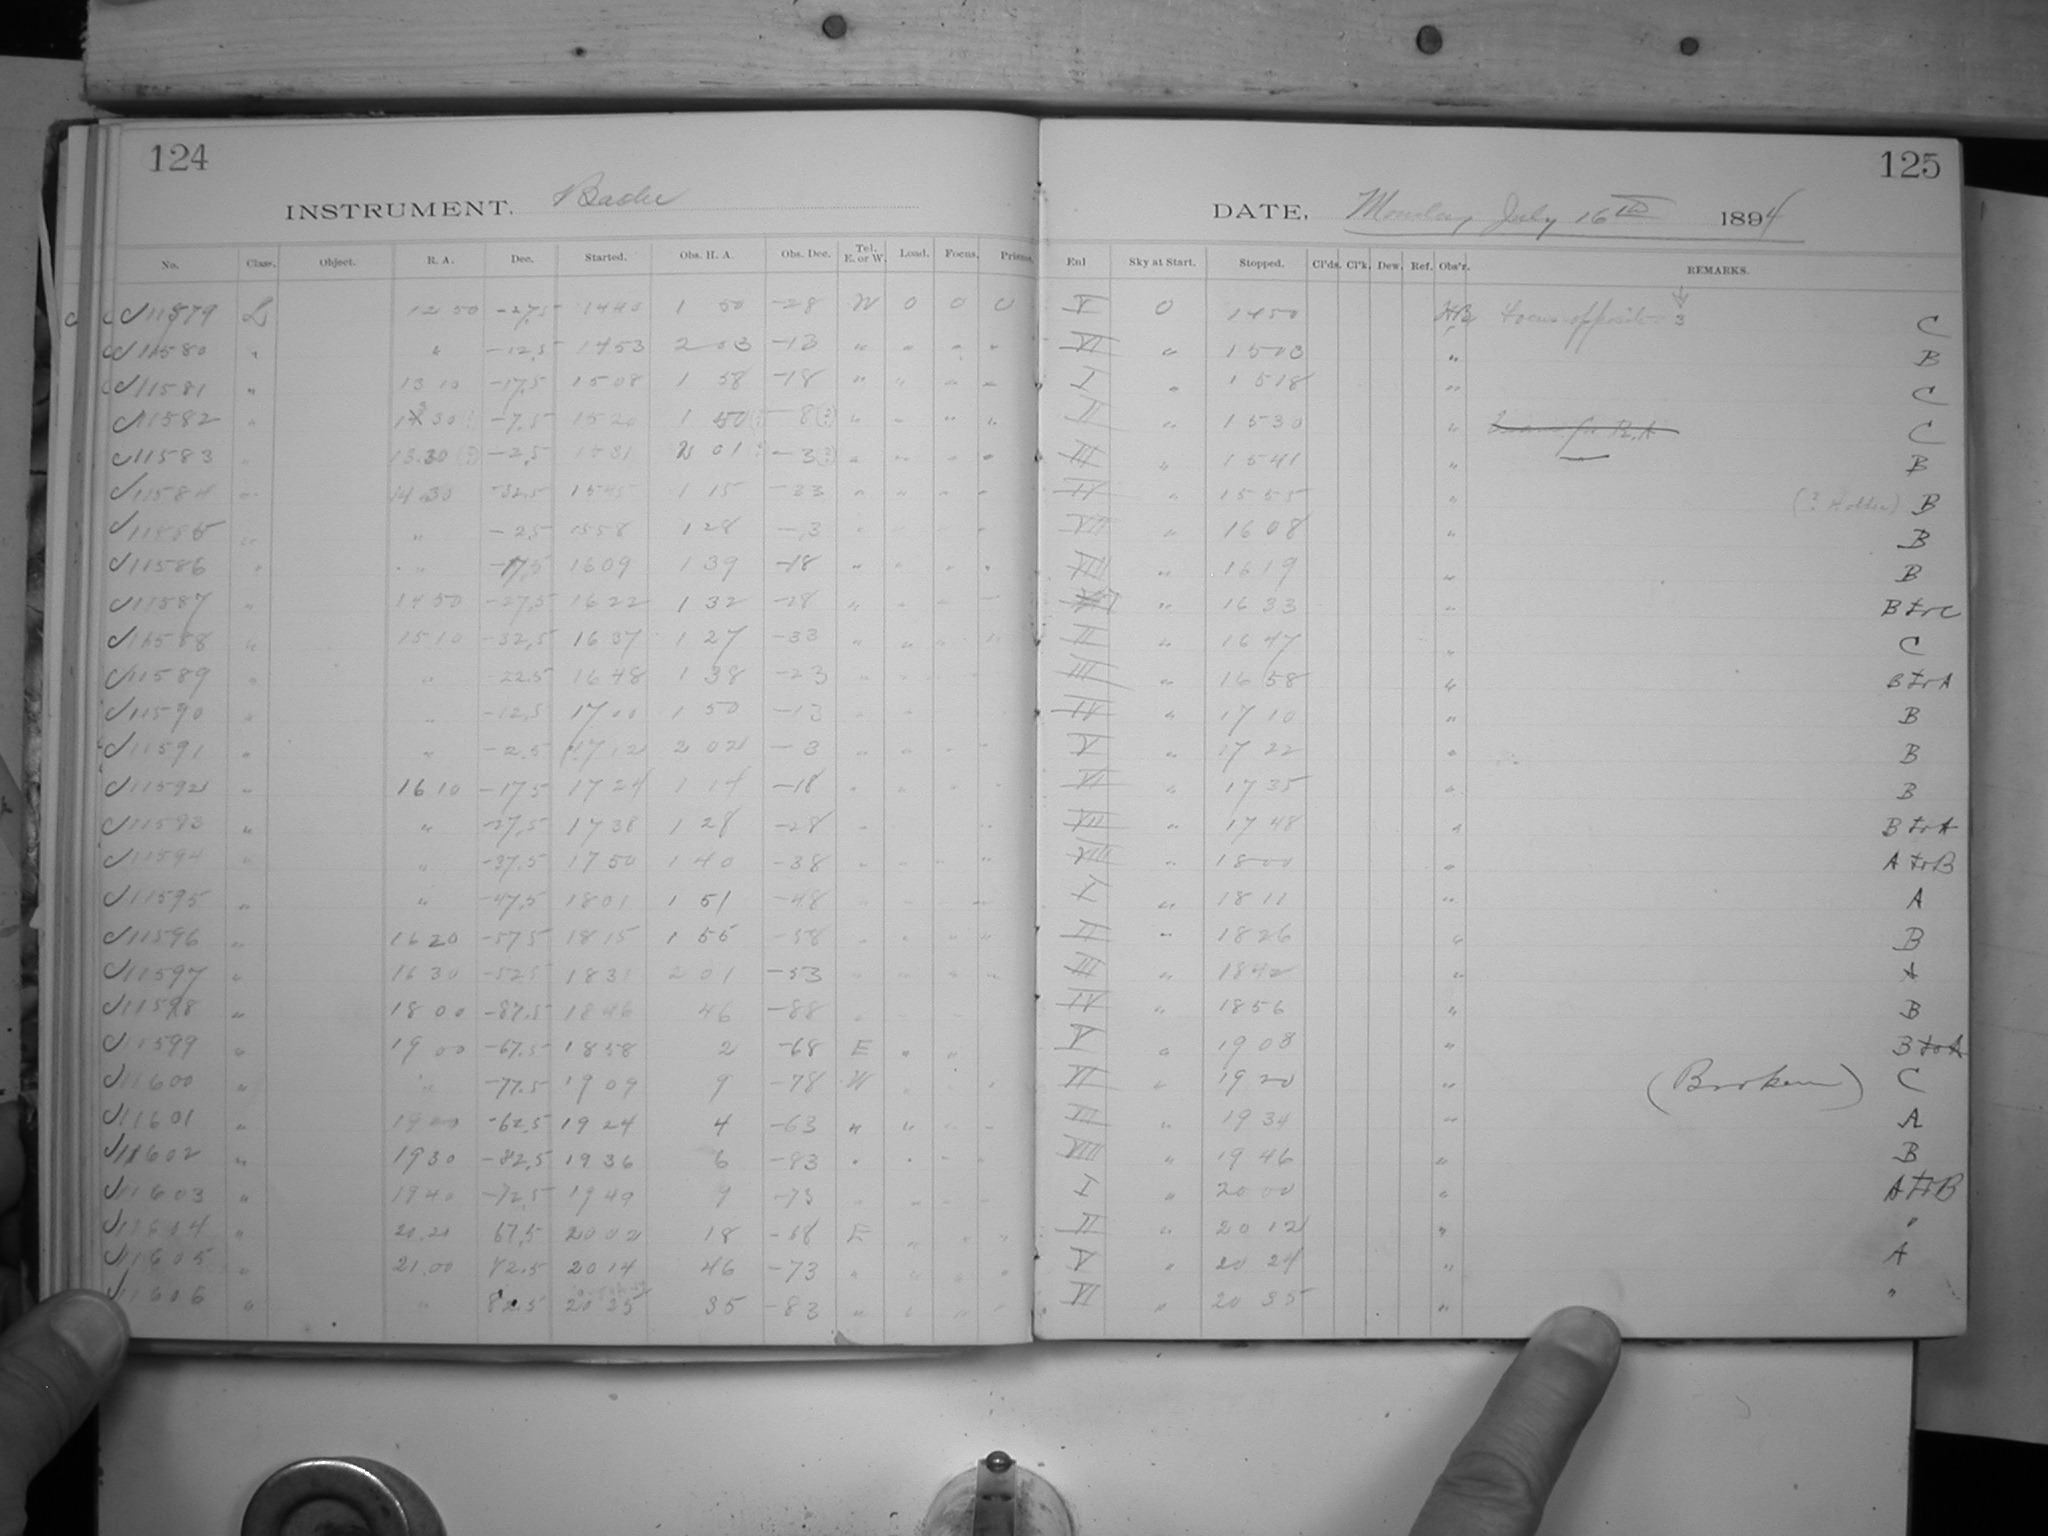 124
INSTRUMENT. Bache
No. Class. Object. R. A. Dec. Started. Obs. H. A. Obs. Dec. Tel. E. or W. Load. Focus. Prisms.
11579 L 12 50 -27.5 1440 1 50 -28 W 0 0 0
11580 " " -12.5 1453 2 03 -13 " " " "
11581 " 13 10 -17.5 1508 1 58 -18 " " " "
11582 " 13 30 -7.5 1520 1 50 -8 (?) " " " "
11583 " 13.30 (?) -2.5 1531 2 01 -3 (?) " " " "
11584 " 14 30 -32.5 1545 1 15 -33 " " " "
11585 " " -2.5 1558 1 28 -3 " " " "
11586 " " -17.5 1609 1 39 -18 " " " "
11587 " 14 50 -27.5 1622 1 32 -28 " " " "
11588 " 15 10 -32.5 1637 1 27 -33 " " " "
11589 " " -22.5 1648 1 38 -23 " " " "
11590 " " -12.5 1700 1 50 -13 " " " "
11591 " " -2.5 1712 2 02 -3 " " " "
11592 " 16 10 -17.5 1724 1 14 -18 " " " "
11593 " " -27.5 1738 1 28 -28 " " " "
11594 " " -37.5 1750 1 40 -38 " " " "
11595 " " -47.5 1801 1 51 -48 " " " "
11596 " 16 20 -57.5 1815 1 55 -58 " " " "
11597 " 16 30 -52.5 1831 2 01 -53 " " " "
11598 " 18 00 -87.5 1846 46 -88 " " " "
11599 " 19 00 -67.5 1858 2 -68 E " "
11600 " " -77.5 1909 9 -78 W " " "
11601 " -62.5 1924 4 -63 " " " "
11602 " 19 30 -82.5 1936 6 -83 " " " "
11603 " 19 40 -72.5 1949 9 -73 " " " "
11604 " 20.20 67.5 2002 18 -68 E " " "
11605 " 21.00 72.5 2014 46 -73 " " " "
11606 " " 82.5 2025 35 -83 " " " "
125
DATE, Monday July 16th 1894
Enl Sky at Start. Stopped. Cl'ds. Cl'k. Dew. Ref. Obs'r. REMARKS.
V 0 1450 Focus opposite 3 C
VI " 1503 " B
I " 1518 " C
II " 1530 " C
III " 1541 " B
IV " 1555 " (? Holder) B
VII " 1608 " B
VIII " 1619 " B
" 1633 " B to C
II " 1647 " C
III " 1658 " B to A
IV " 1710 " B
V " 1722 " B
VI " 1735 " B
VII " 1748 " B to A
VIII " 1800 " A to B
I " 1811 " A
II " 1826 " B
III " 1842 " A
IV " 1856 " B
V " 1908 " B to A
VI " 1920 " (Broken) C
" 1934 " A
VIII " 1946 " B
I " 2000 " A to B
II " 2012 " "
V " 2024 " A
VI " 2035 " "